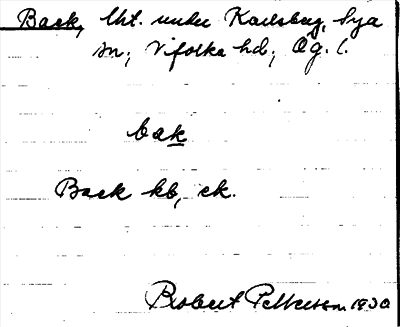 Back, lht. under Karlsberg, Sya
sn; Vifolka hd; Ög. l.
bak
Back kb, ek.
Robert Pettersson 1930